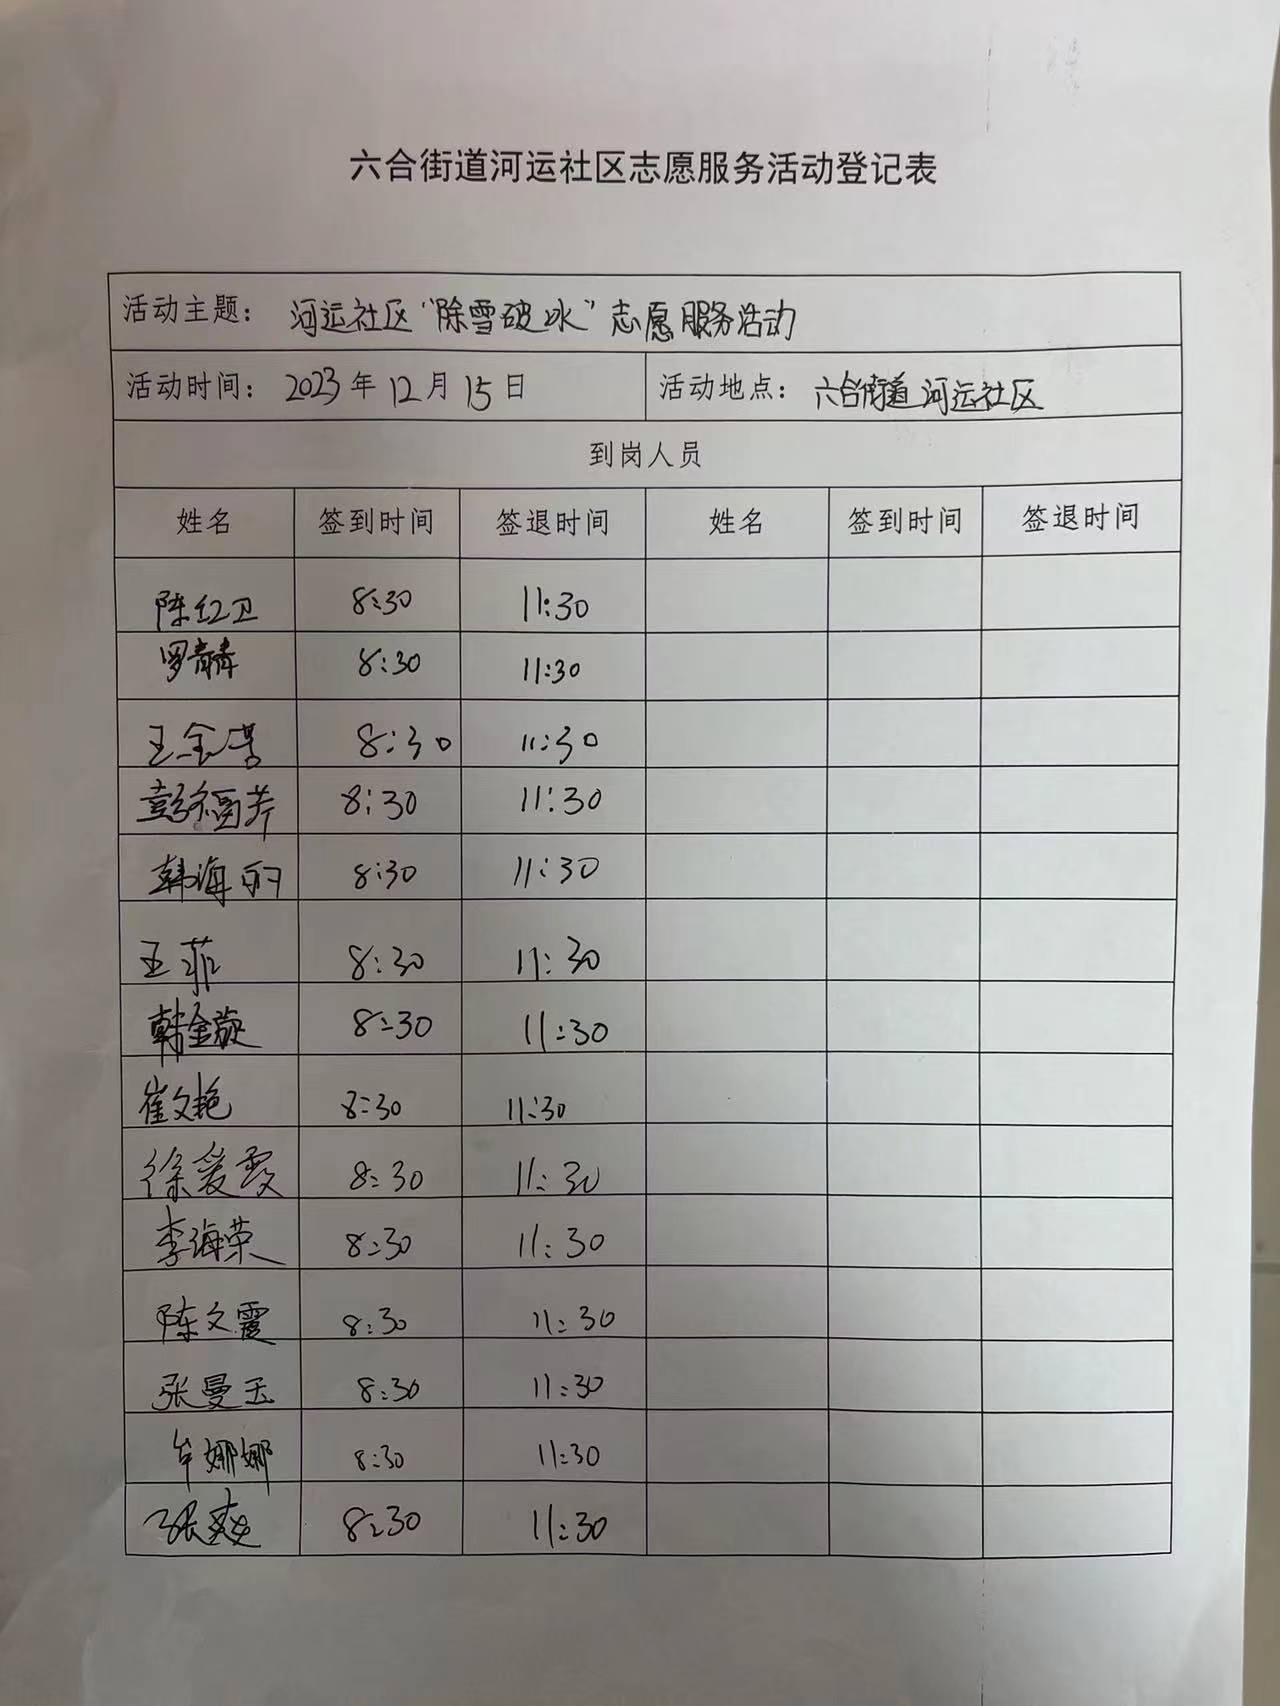 六合街道河运社区志愿服务活动登记表
活动主题： 河运社区“除雪破冰”志愿服务活动
活动时间： 2023年12月15日 活动地点： 六合街道河运社区
到岗人员
姓名 签到时间 签退时间 姓名 签到时间 签退时间
陈红卫 8:30 11:30
罗青青 8:30 11:30
王金 8:30 11:30
彭福芹 8:30 11:30
韩海丽 8:30 11:30
王菲 8:30 11:30
韩金璇 8:30 11:30
崔文艳 8:30 11:30
徐爱霞 8:30 11:30
李海荣 8:30 11:30
陈文霞 8:30 11:30
张曼玉 8:30 11:30
牟娜娜 8:30 11:30
张爽 8:30 11:30